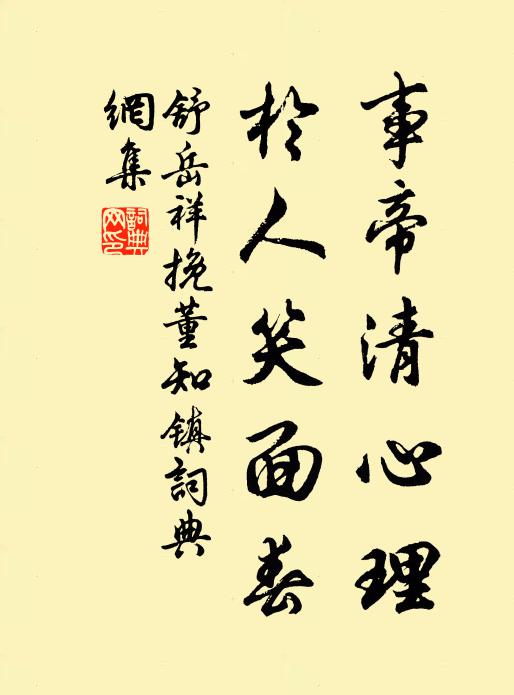 事帝清心理
於人笑面春
舒岳祥挽董知鎮詞典
網集
詞典網印